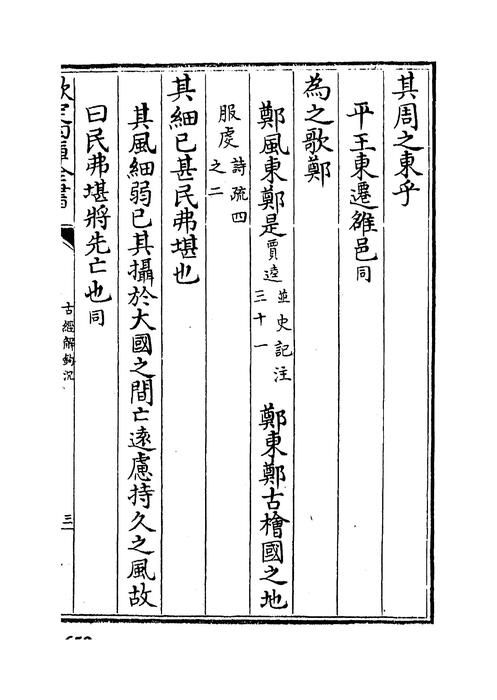 其周之東乎
平王東遷雒邑同
為之歌鄭
鄭風東鄭是賈逵並史記注三十一 鄭東鄭古檜國之地
服虔詩疏四之二
其細已甚民弗堪也
其風細弱已其攝於大國之間亡遠慮持久之風故
曰民弗堪將先亡也同
欽定四庫全書
古經解鉤沉
三